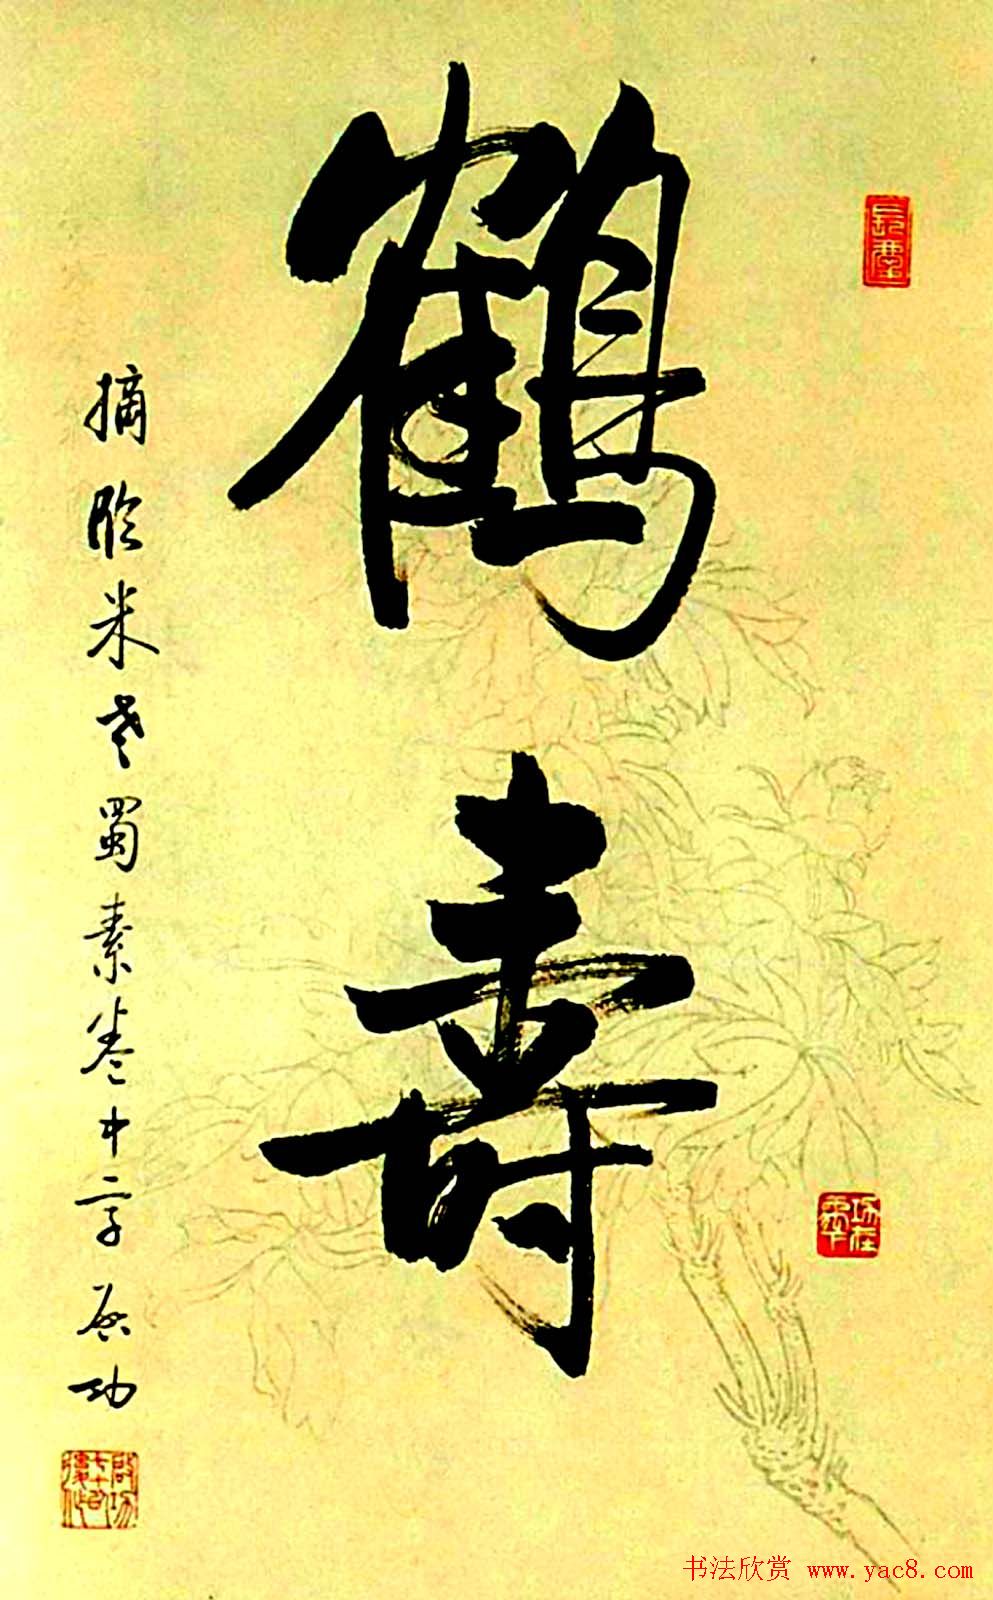 鶴
壽
摘臨米老蜀素卷中字 启功
书法欣赏 www.yac8.com